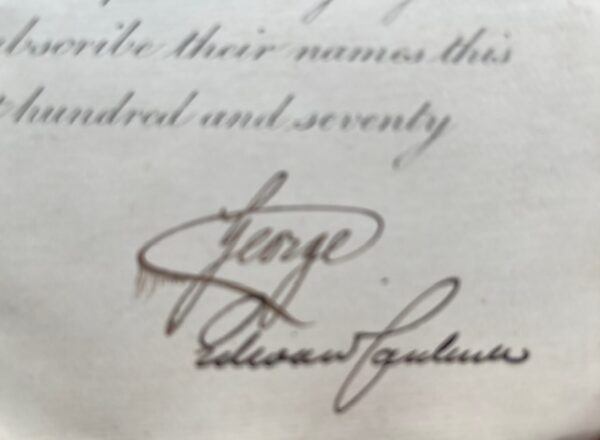 subscribe their names this
hundred and seventy
George
Edward